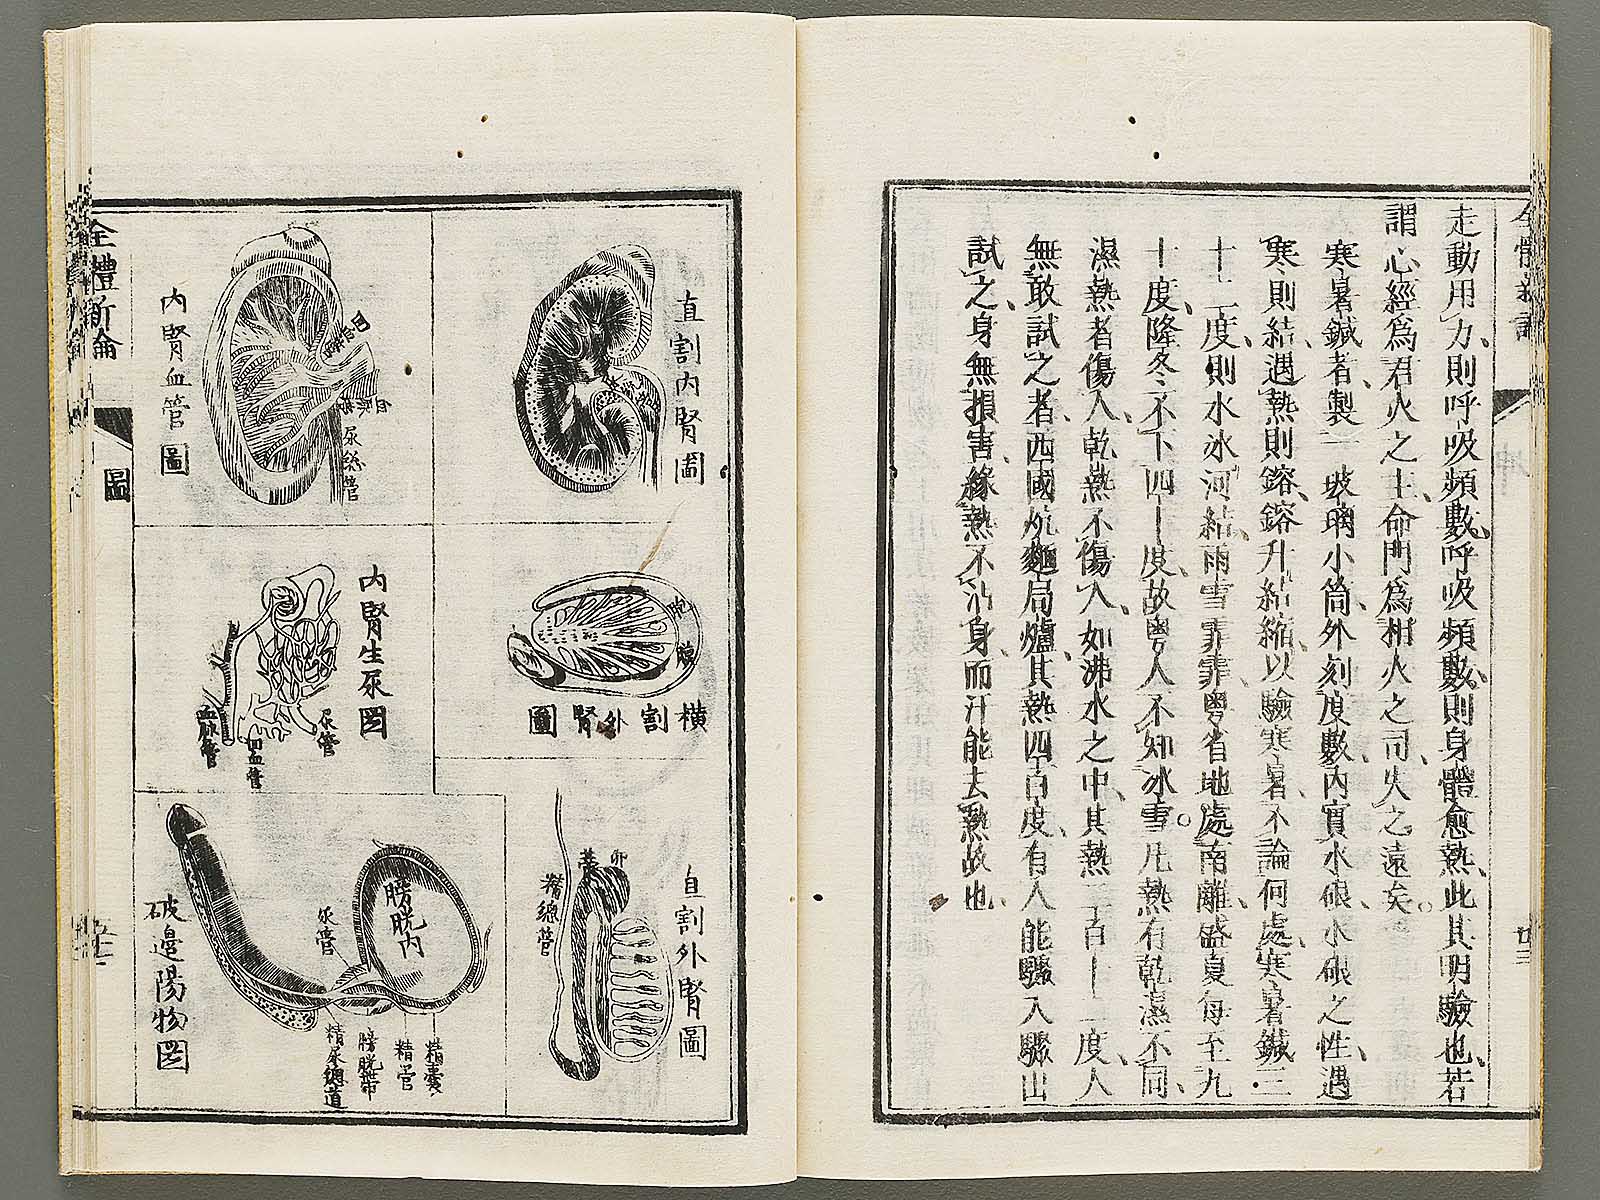 走動用力、則呼吸頻數、呼吸頻數、則身體愈熱、此其明驗也、若
謂心經爲君火之主、命門爲相火之司、失之遠矣。
寒暑鍼者、製一玻璃小筒、外刻度數、內實水硍、水硍之性、遇
寒則結、遇熱則鎔、鎔升結縮、以驗寒暑、不論何處、寒暑鍼三
十二度、則水冰河結、雨雪霏霏、粵省地處南離、盛夏每至九
十度、隆冬不下四十度、故粵人不知冰雪。凡熱有乾濕不同、
濕熱者傷人、乾熱不傷人、如沸水之中、其熱二百一十二度、人
無敢試之者、西國炕麵局爐、其熱四百度、有人能驟入驟出
試之、身無損害、緣熱不沾身、而汗能去熱故也、
直割內腎圖
內腎血管圖
尿總管
橫割外腎圖
胞膜
內腎生尿圖
血脉管
血管
尿管
直割外腎圖
卵蒂
精總管
破邊陽物圖
膀胱內
尿管
精囊
精管
膀胱蒂
精尿總道
全體新論
圖